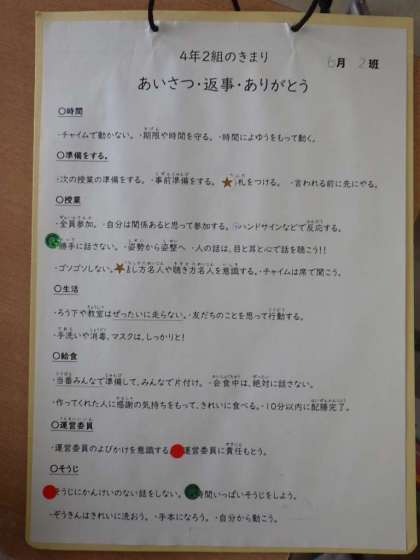 4年2組のきまり
あいさつ・返事・ありがとう
6月 2班
〇時間
・チャイムで動かない。・期限や時間を守る。・時間によゆうをもって動く。
〇準備をする。
・次の授業の準備をする。・事前準備をする。札をつける。・言われる前に先にやる。
〇授業
・全員参加。・自分は関係あると思って参加する。ハンドサインなどで反応する。
勝手に話さない。・姿勢から姿撃へ・人の話は、目と耳と心で話を聴こう!!
・ゴソゴソしない。話し方名人や聴き方名人を意識する。・チャイムは席で聞こう。
〇生活
・ろう下や教室はぜったいに走らない。・友だちのことを思って行動する。
・手洗いや消毒。マスクは、しっかりと!
〇給食
・当番みんなで準備して、みんなで片付け。・会食中は、絶対に話さない。
・作ってくれた人に感謝の気持ちをもって、きれいに食べる。・10分以内に配膳完了。
〇運営委員
・運営委員のよびかけを意識する 運営委員に責任もとう。
〇そうじ
そうじにかんけいのない話をしない。時間いっぱいそうじをしよう。
・ぞうきんはきれいに洗おう。・手本になろう。・自分から動こう。